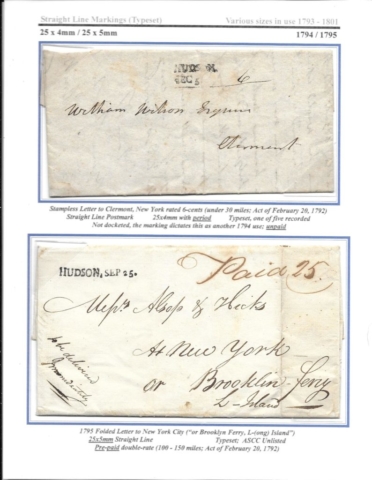 Straight Line Markings (Typeset)
Various sizes in use 1793 - 1801
25 x 4mm / 25 x 5mm
1794 / 1795
HUDSON.
DEC 5
6
William Wilson Esquire
Clermont
Stampless Letter to Clermont, New York rated 6-cents (under 30 miles; Act of February 20, 1792)
Straight Line Postmark 25x4mm with period Typeset, one of five recorded
Not docketed, the marking dictates this as another 1794 use; unpaid
Paid 25.
HUDSON, SEP 25.
Messrs Alsop & Hicks
At New York
or Brooklin Ferry
L-Island
to be delivered
Immediately
1795 Folded Letter to New York City ("or Brooklyn Ferry, L-(ong) Island")
25x5mm Straight Line Typeset; ASCC Unlisted
Pre-paid double-rate (100 - 150 miles; Act of February 20, 1792)